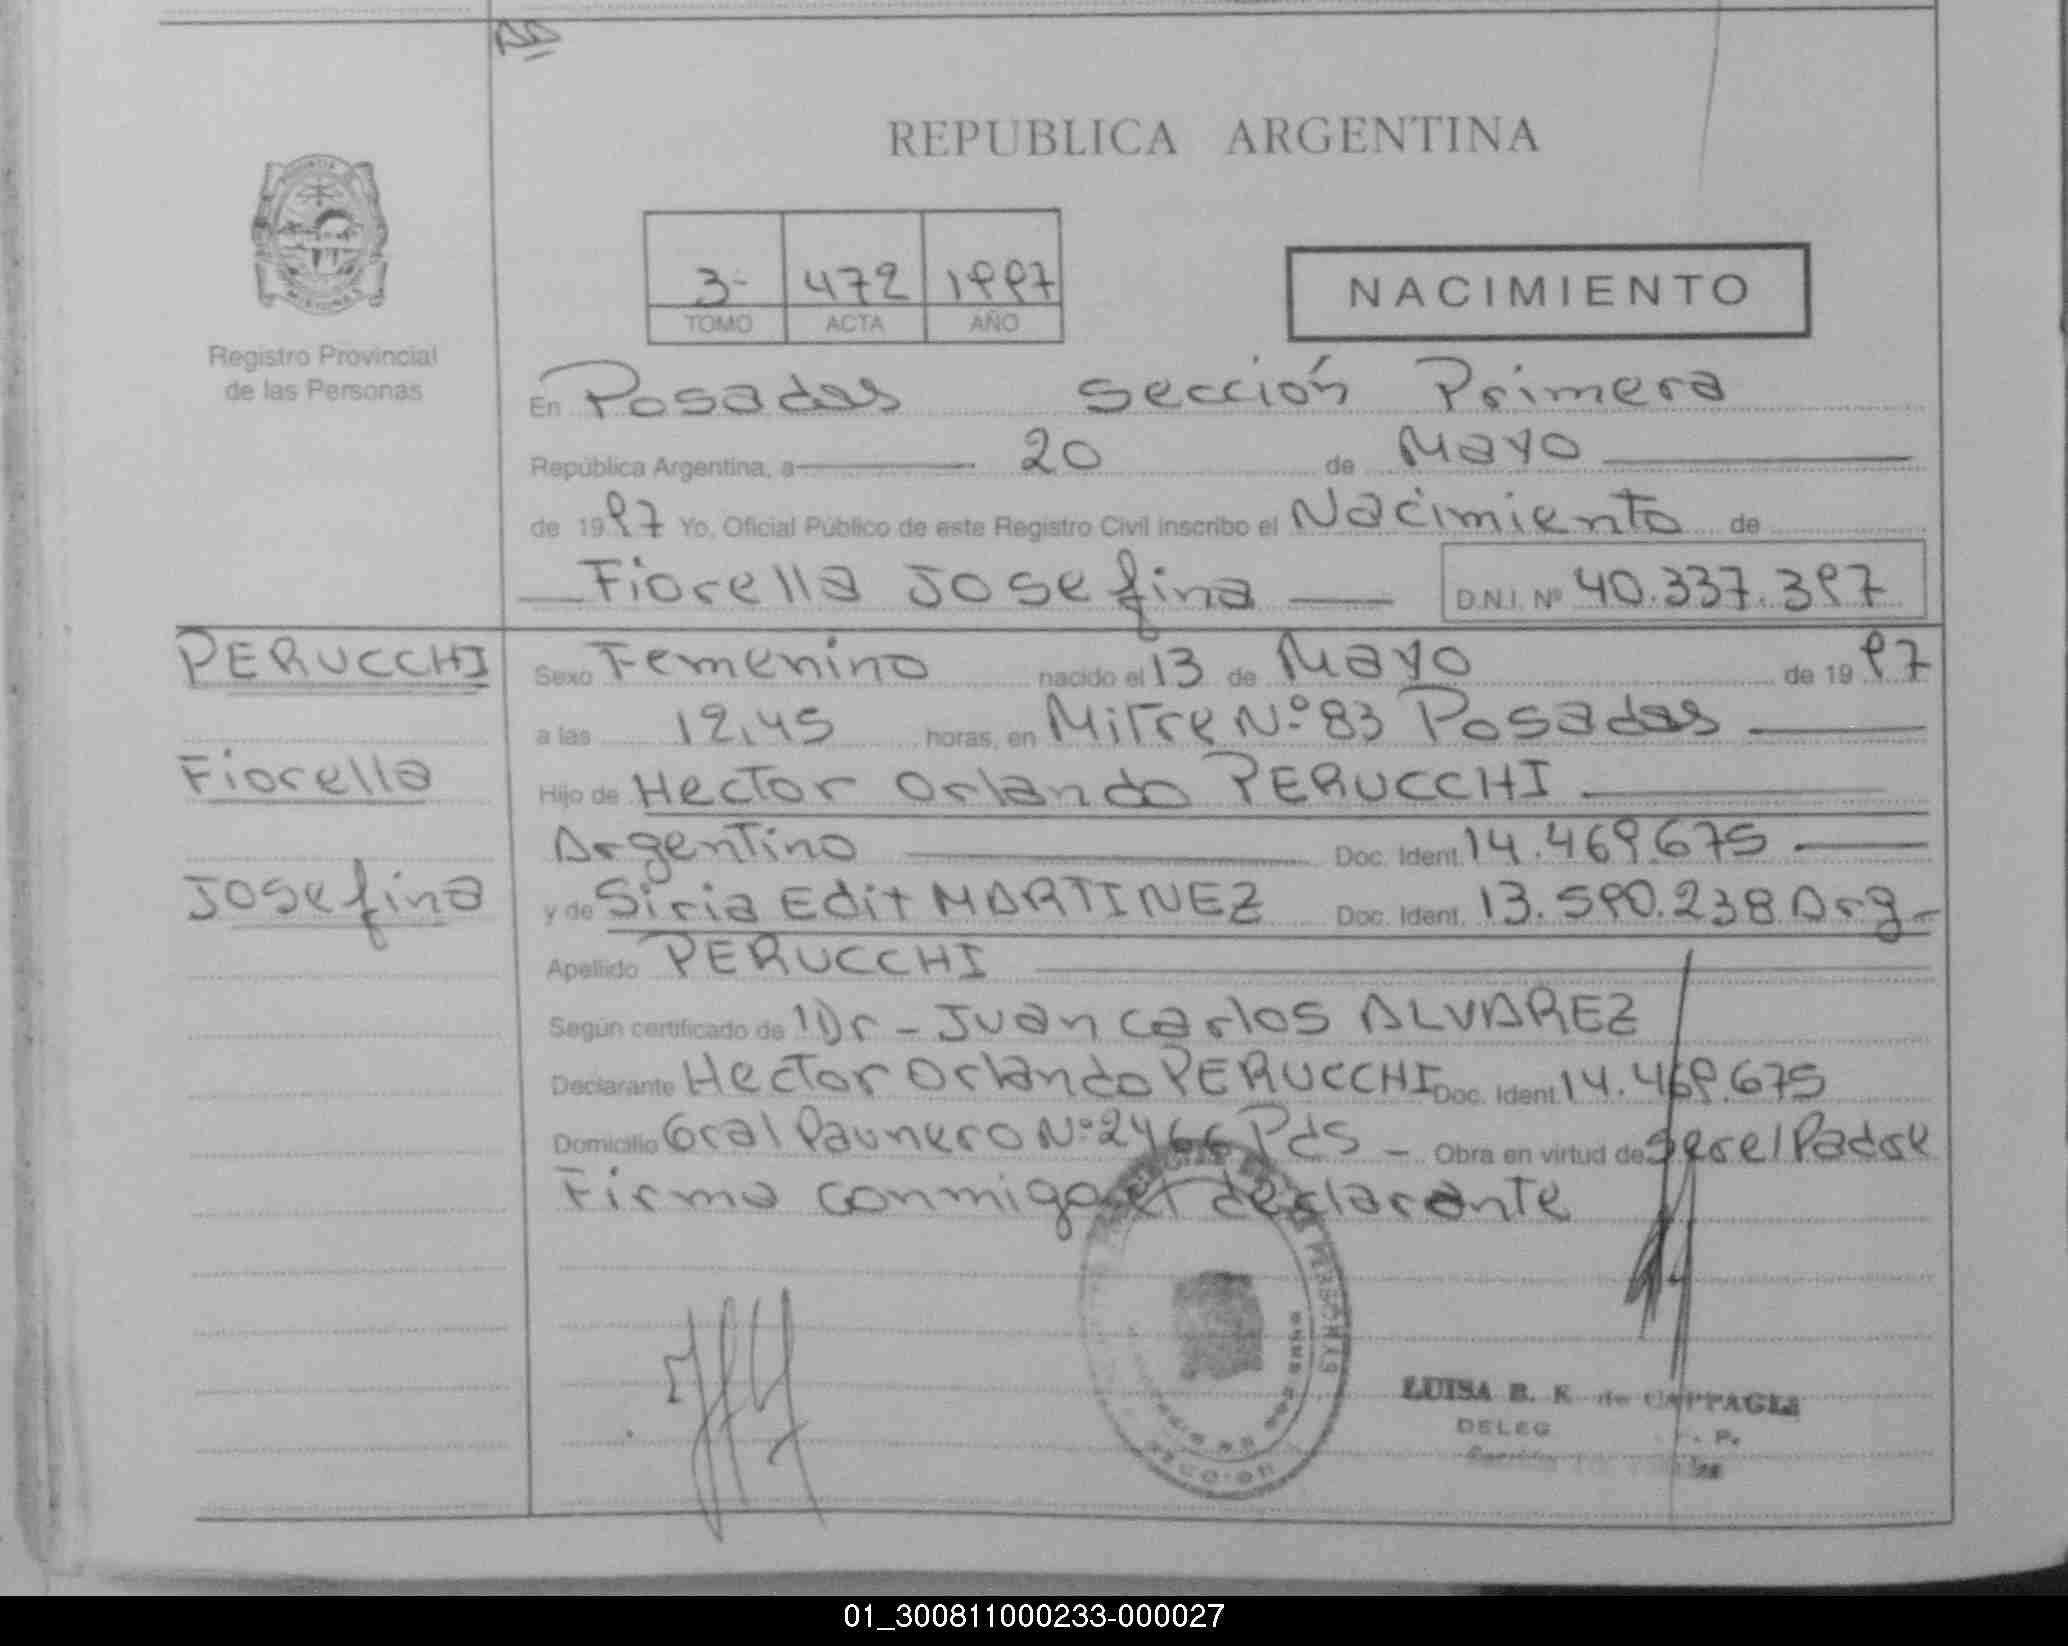 REPUBLICA ARGENTINA
3- 472 1997
TOMO ACTA AÑO
NACIMIENTO
Registro Provincial
de las Personas
En Posadas sección Primera
República Argentina, a 20 de Mayo
de 1997 Yo, Oficial Público de este Registro Civil inscribo el Nacimiento de
Fiorella Josefina D.N.I. Nº 40.337.397
PERUCCHI
Fiorella
Josefina
Sexo Femenino nacido el 13 de Mayo de 1997
a las 12,45 horas, en Mitre Nº 83 Posadas
Hijo de Hector Orlando PERUCCHI
Argentino Doc. Ident. 14.469.675
y de Siria Edit MARTINEZ Doc. Ident. 13.590.238 Arg-
Apellido PERUCCHI
Según certificado de Dr - Juan Carlos ALVAREZ
Declarante Hector Orlando PERUCCHI Doc. Ident. 14.469.675
Domicilio Gral Paunero Nº 2466 Pds - Obra en virtud de ser el Padre
Firma conmigo el declarante
LUISA B. K de CAPPAGLI
DELEG
01_300811000233-000027